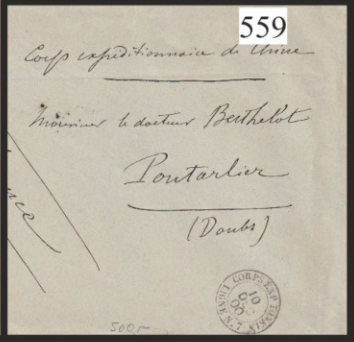 559
Corps expéditionnaire de Chine
Monsieur le docteur Berthelot
Pontarlier
(Doubs)
CORPS EXP
10
DEC
00
LIGNE N.
500,-